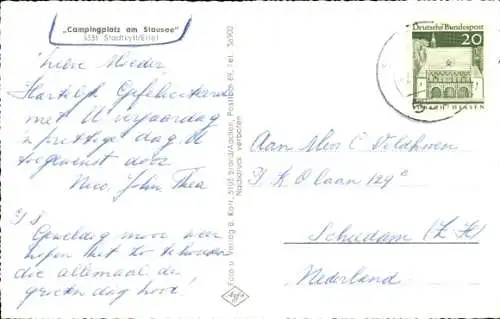 „Campingplatz am Stausee“
5531 Stadtkyll/Eifel
Lieve Moeder
Hartelijk Gefeliciteerd
met Uw verjaardag
'n prettige dag U
toegewenst door
Nico, John Thea
P.S.
Geweldig mooi weer
hopen het zo te houden
die allemaal de
groeten dag hoor!
Foto u. Verlag B. Kort, 5101 Brand/Aachen, Postfach 69, Tel. 56900
Nachdruck verboten
Agfa
Deutsche Bundespost
20
LORSCH HESSEN
Aan Mevr C Veldhoven
P.K.O laan 129c
Schiedam (Z.H)
Nederland